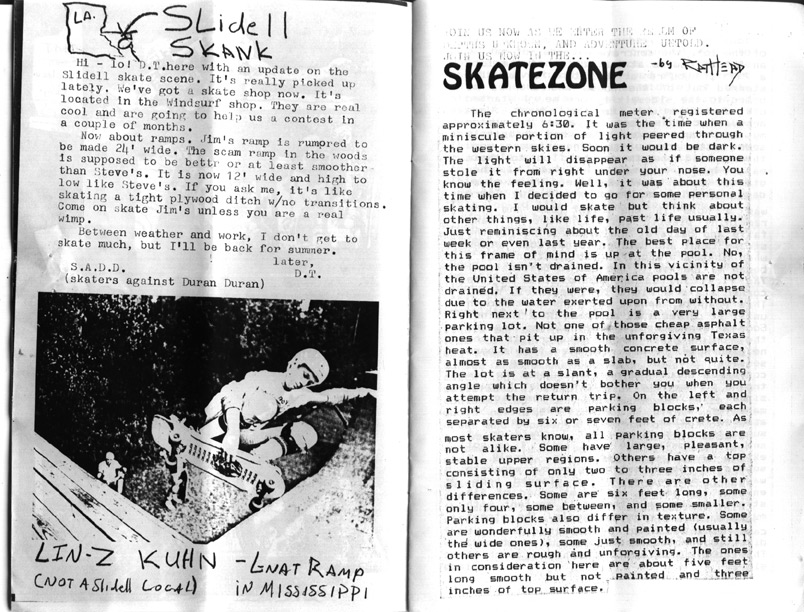 LA.
SLidell
SKANK
Hi - Io! D.T.here with an update on the
Slidell skate scene. It's really picked up
lately. We've got a skate shop now. It's
located in the Windsurf shop. They are real
cool and are going to help us a contest in
a couple of months.
Now about ramps. Jim's ramp is rumored to
be made 24' wide. The scam ramp in the woods
is supposed to be bettr or at least smoother
than Steve's. It is now 12' wide and high to
low like Steve's. If you ask me, it's like
skating a tight plywood ditch w/no transitions.
Come on skate Jim's unless you are a real
wimp.
Between weather and work, I don't get to
skate much, but I'll be back for summer.
later,
D.T.
S.A.D.D.
(skaters against Duran Duran)
LIN-Z KUHN - GNAT RAMP
(NOT A Slidell LOCAL) IN MISSISSIPPI
JOIN US NOW AS WE ENTER THE REALM OF
AND ADVENTURE UNTOLD.
JOIN US NOW IN THE...
SKATEZONE -by RATHEAD
The chronological meter registered
approximately 6:30. It was the time when a
miniscule portion of light peered through
the western skies. Soon it would be dark.
The light will disappear as if someone
stole it from right under your nose. You
know the feeling. Well, it was about this
time when I decided to go for some personal
skating. I would skate but think about
other things, like life, past life usually.
Just reminiscing about the old day of last
week or even last year. The best place for
this frame of mind is up at the pool. No,
the pool isn't drained. In this vicinity of
the United States of America pools are not
drained. If they were, they would collapse
due to the water exerted upon from without.
Right next to the pool is a very large
parking lot. Not one of those cheap asphalt
ones that pit up in the unforgiving Texas
heat. It has a smooth concrete surface,
almost as smooth as a slab, but not quite.
The lot is at a slant, a gradual descending
angle which doesn't bother you when you
attempt the return trip. On the left and
right edges are parking blocks, each
separated by six or seven feet of crete. As
most skaters know, all parking blocks are
not alike. Some have large, pleasant,
stable upper regions. Others have a top
consisting of only two to three inches of
sliding surface. There are other
differences. Some are six feet long, some
only four, some between, and some smaller.
Parking blocks also differ in texture. Some
are wonderfully smooth and painted (usually
the wide ones), some just smooth, and still
others are rough and unforgiving. The ones
in consideration here are about five feet
long smooth but not painted and three
inches of top surface.